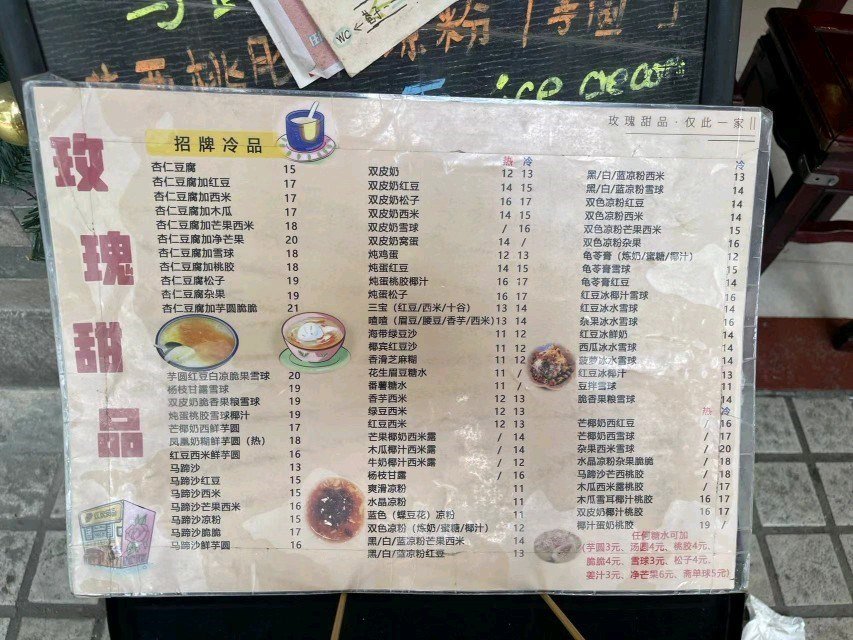 WC
Ice cream
玫瑰甜品
玫瑰甜品·仅此一家
招牌冷品
杏仁豆腐 15
杏仁豆腐加红豆 17
杏仁豆腐加西米 17
杏仁豆腐加木瓜 17
杏仁豆腐加芒果西米 18
杏仁豆腐加净芒果 20
杏仁豆腐加雪球 18
杏仁豆腐加桃胶 18
杏仁豆腐松子 19
杏仁豆腐杂果 19
杏仁豆腐加芋圆脆脆 21
芋圆红豆白凉脆果雪球 20
杨枝甘露雪球 19
双皮奶脆香果粮雪球 19
炖蛋桃胶雪球椰汁 19
芒椰奶西鲜芋圆 17
凤凰奶糊鲜芋圆（热） 18
红豆西米鲜芋圆 16
马蹄沙 13
马蹄沙红豆 15
马蹄沙西米 15
马蹄沙芒果西米 16
马蹄沙凉粉 15
马蹄沙脆脆 17
马蹄沙鲜芋圆 16
热 冷
双皮奶 12 13
双皮奶红豆 14 15
双皮奶松子 16 17
双皮奶西米 14 15
双皮奶雪球 / 16
双皮奶窝蛋 14 /
炖鸡蛋 12 13
炖蛋红豆 14 15
炖蛋桃胶椰汁 16 17
炖蛋松子 16 17
三宝（红豆/西米/十谷） 13 14
喳喳（眉豆/腰豆/香芋/西米） 13 14
海带绿豆沙 11 12
椰宾红豆沙 11 12
香滑芝麻糊 11 12
花生眉豆糖水 11 12
番薯糖水 11 /
香芋西米 12 13
绿豆西米 12 13
红豆西米 12 13
芒果椰奶西米露 / 14
木瓜椰汁西米露 / 14
牛奶椰汁西米露 / 12
杨枝甘露 / 16
爽滑凉粉 11
水晶凉粉 11
蓝色（蝶豆花）凉粉 11
双色凉粉（炼奶/蜜糖/椰汁） 12
黑/白/蓝凉粉芒果西米 14
黑/白/蓝凉粉红豆 13
冷
黑/白/蓝凉粉西米 13
黑/白/蓝凉粉雪球 14
双色凉粉红豆 14
双色凉粉西米 14
双色凉粉芒果西米 15
双色凉粉杂果 16
龟苓膏（炼奶/蜜糖/椰汁） 12
龟苓膏雪球 15
龟苓膏红豆 14
红豆冰椰汁雪球 16
红豆冰水雪球 14
杂果冰水雪球 16
红豆冰鲜奶 14
西瓜冰水雪球 14
菠萝冰水雪球 14
红豆冰椰汁 13
豆拌雪球 11
脆香果粮雪球 14
热 冷
芒椰奶西红豆 / 16
芒椰奶西雪球 / 17
杂果西米雪球 / 20
水晶凉粉杂果脆脆 / 18
马蹄沙芒西桃胶 / 18
木瓜西米露桃胶 / 17
木瓜雪耳椰汁桃胶 16 17
双皮奶椰汁桃胶 16 17
椰汁蛋奶桃胶 19 /
任何糖水可加
（芋圆3元、汤圆4元、桃胶4元、
脆脆4元、雪球3元、松子4元、
姜汁3元、净芒果6元、斋单球5元）